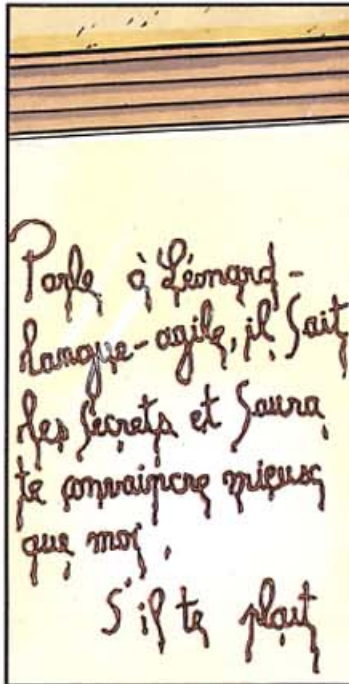 Parle à Léonard-
langue-agile, il sait
les secrets et saura
te convaincre mieux
que moi.
S'il te plait